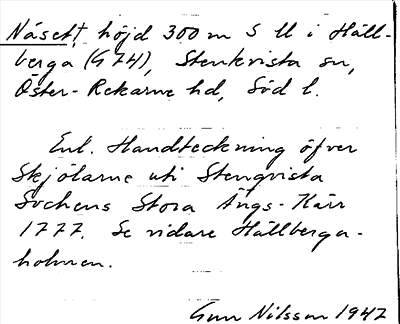 Näset, höjd 300 m S U i Häll-
berga (G 74), Stenkvista sn,
Öster-Rekarne hd, Söd l.
Enl. Handteckning öfver
Skjölarne uti Stenqvista
Sochens Stora Ängs-Kärr
1777. Se vidare Hällberga-
holmen.
Gun Nilsson 1947